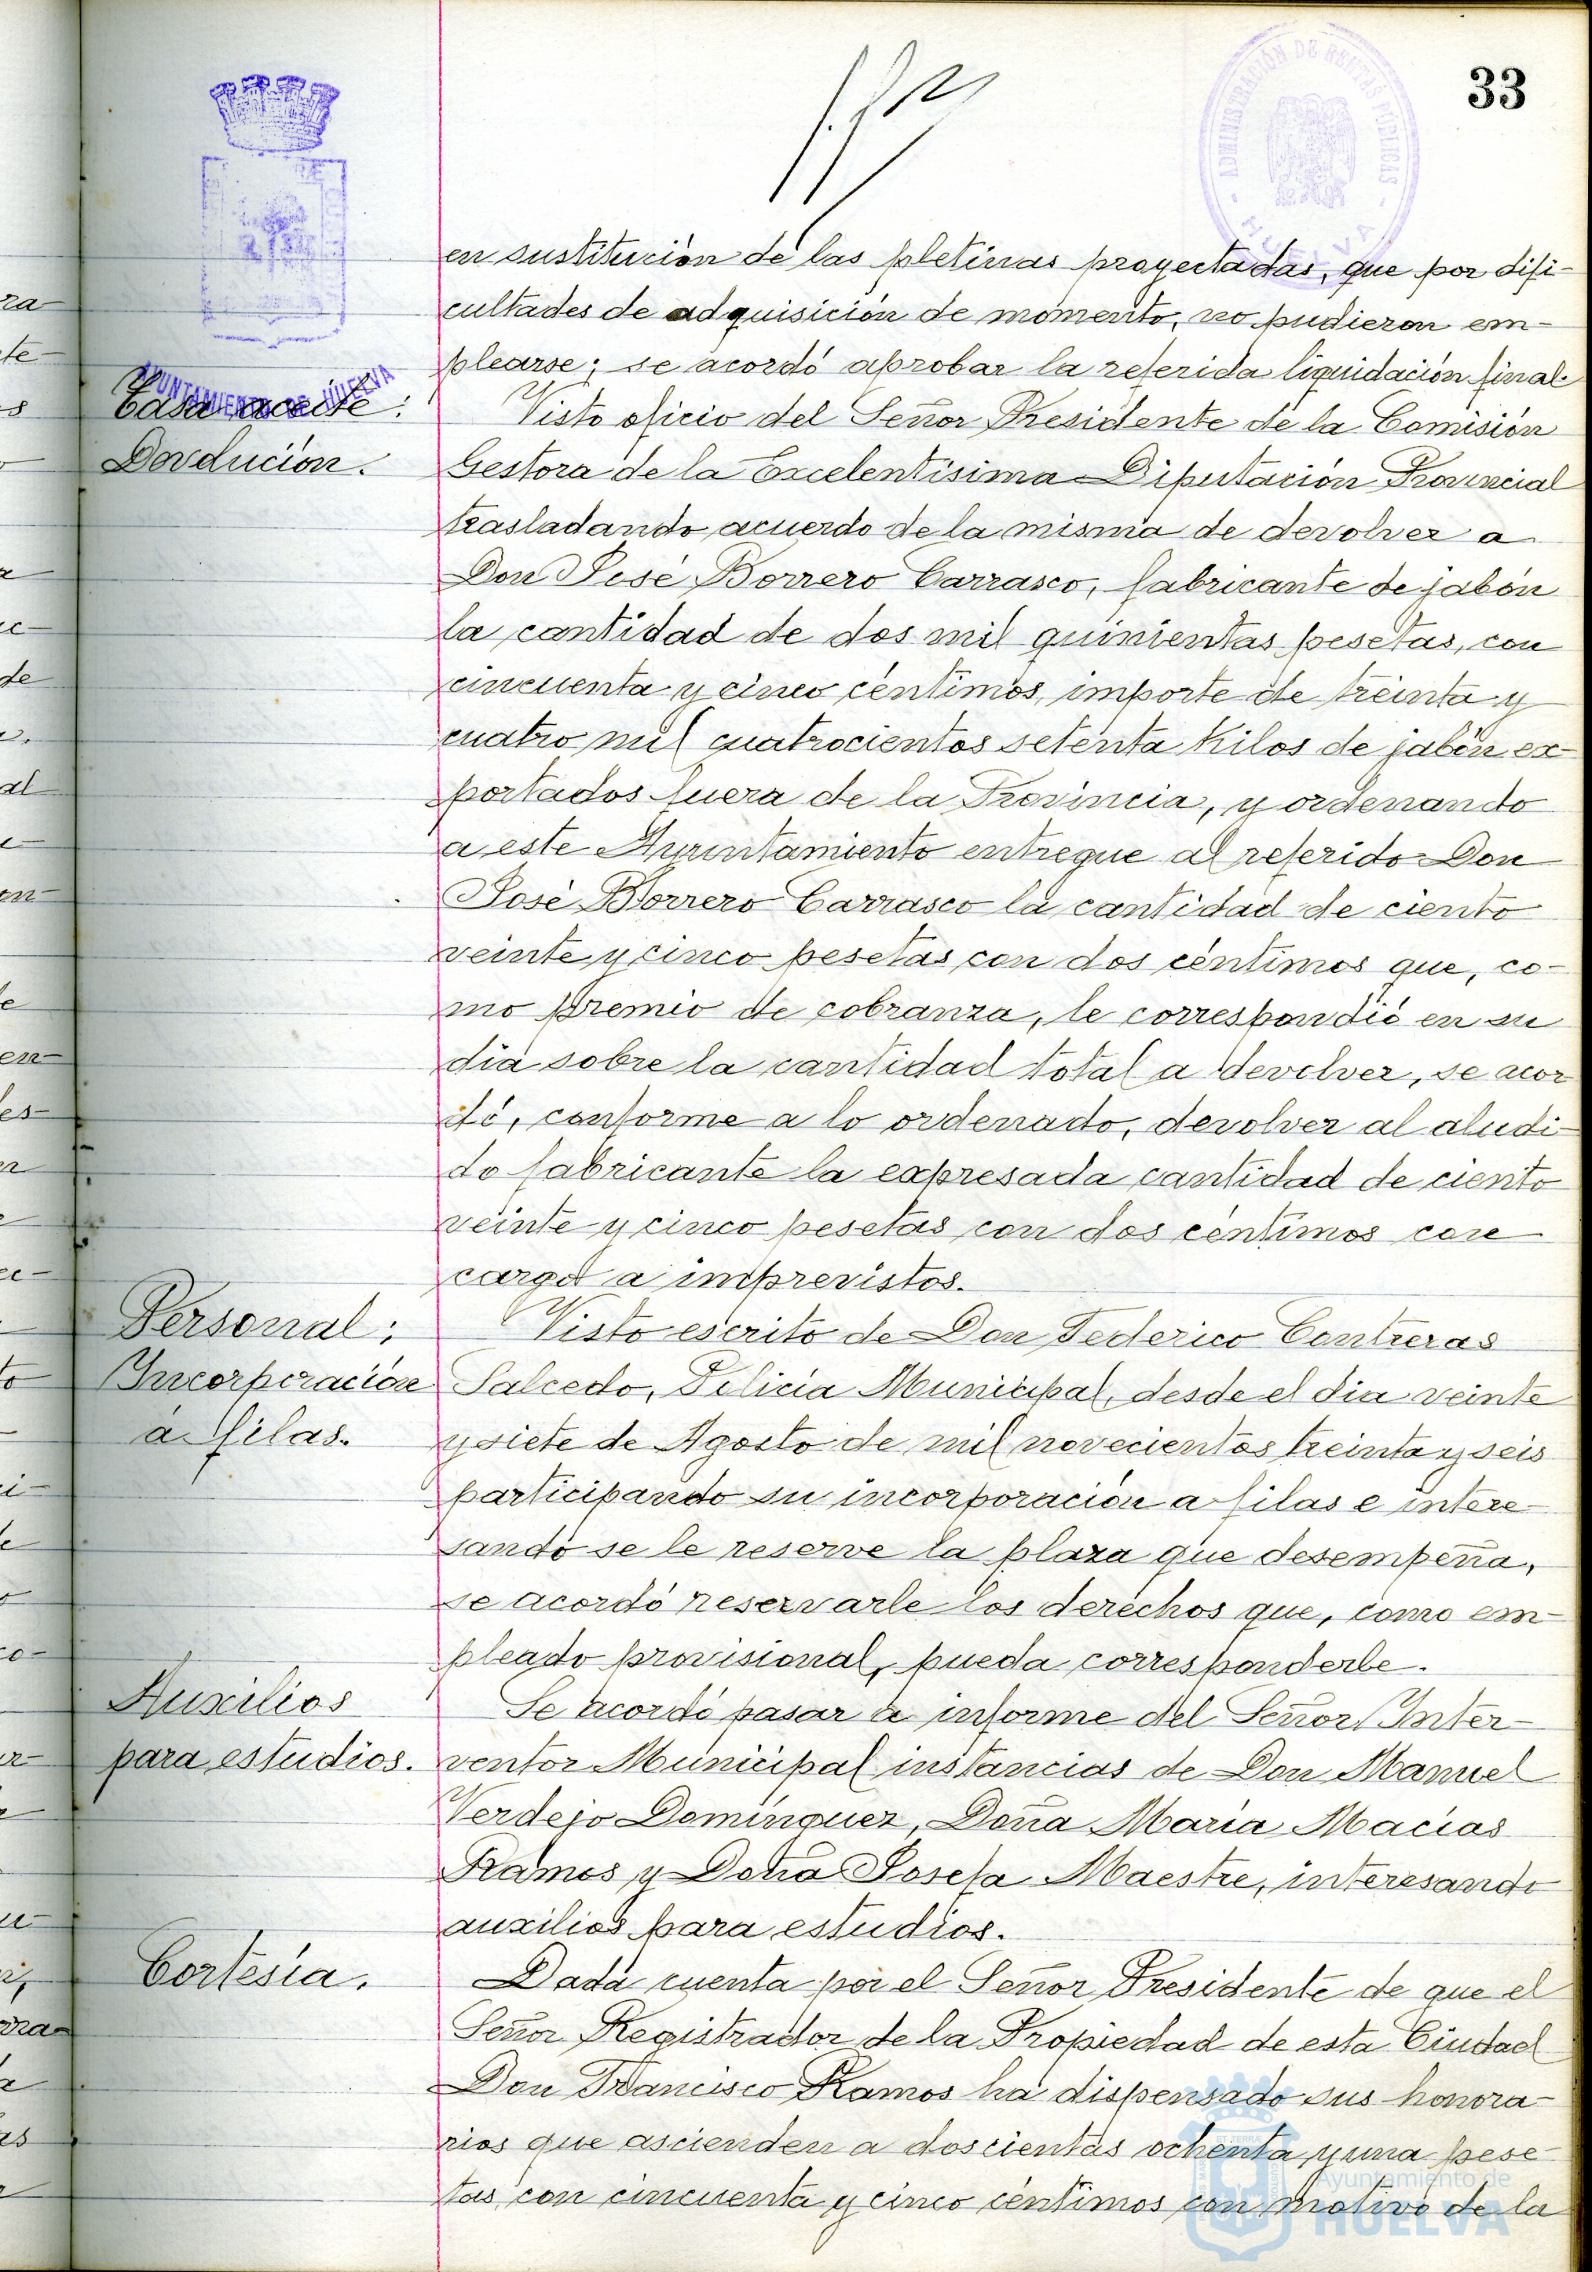 33
ADMINISTRACIÓN DE RENTAS PÚBLICAS
HUELVA
AYUNTAMIENTO DE HUELVA
en sustitución de las pletinas proyectadas, que por difi-
cultades de adquisición de momento, no pudieron em-
plearse; se acordó aprobar la referida liquidación final.
Tasa aceite:
Devolución.
Visto oficio del Señor Presidente de la Comisión
Gestora de la Excelentísima Diputación Provincial
trasladando acuerdo de la misma de devolver a
Don José Borrero Carrasco, fabricante de jabón
la cantidad de dos mil quinientas pesetas, con
cincuenta y cinco céntimos, importe de treinta y
cuatro mil cuatrocientos setenta kilos de jabón ex-
portados fuera de la Provincia, y ordenando
a este Ayuntamiento entregue al referido Don
José Borrero Carrasco la cantidad de ciento
veinte y cinco pesetas con dos céntimos que, co-
mo premio de cobranza, le correspondió en su
día sobre la cantidad total a devolver, se acor
dó, conforme a lo ordenado, devolver al aludi-
do fabricante la expresada cantidad de ciento
veinte y cinco pesetas con dos céntimos con
cargo a imprevistos.
Personal;
Incorporación
a filas.
Visto escrito de Don Federico Contreras
Salcedo, Policía Municipal, desde el día veinte
y siete de Agosto de mil novecientos treinta y seis
participando su incorporación a filas e intere-
sando se le reserve la plaza que desempeña,
se acordó reservarle los derechos que, como em-
pleado provisional, pueda corresponderle.
Auxilios
para estudios.
Se acordó pasar a informe del Señor Inter-
ventor Municipal instancias de Don Manuel
Verdejo Domínguez, Doña María Macías
Ramos y Doña Josefa Maestre, interesando
auxilios para estudios.
Cortesía.
Dada cuenta por el Señor Presidente de que el
Señor Registrador de la Propiedad de esta Ciudad
Don Francisco Ramos ha dispensado sus honora-
rios que ascienden a doscientas ochenta y una pese-
tas con cincuenta y cinco céntimos con motivo de la
Ayuntamiento de
HUELVA